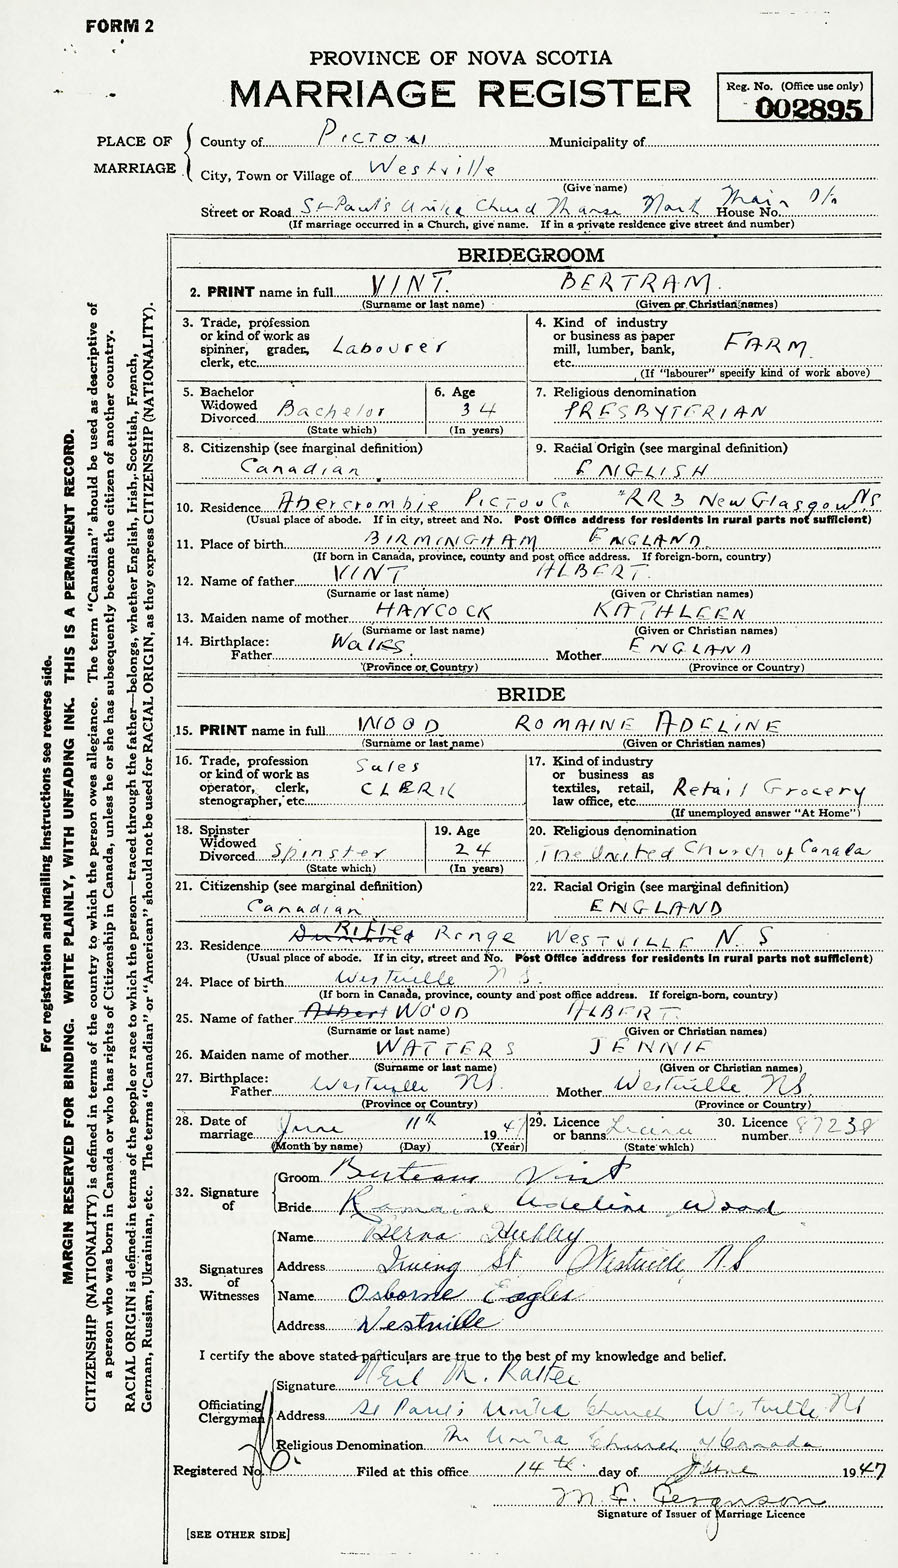 FORM 2
PROVINCE OF NOVA SCOTIA
MARRIAGE REGISTER
Reg. No. (Office use only)
002895
PLACE OF MARRIAGE
County of Pictou Municipality of
City, Town or Village of Westville
(Give name)
Street or Road St Paul's United Church Manse North Main St House No.
(If marriage occurred in a Church, give name. If in a private residence give street and number)
BRIDEGROOM
2. PRINT name in full VINT. BERTRAM.
(Surname or last name) (Given or Christian names)
3. Trade, profession or kind of work as spinner, grader, clerk, etc. Labourer
4. Kind of industry or business as paper mill, lumber, bank, etc. FARM
(If "labourer" specify kind of work above)
5. Bachelor Widowed Divorced Bachelor
(State which)
6. Age 34
(In years)
7. Religious denomination
PRESBYTERIAN
8. Citizenship (see marginal definition)
Canadian
9. Racial Origin (see marginal definition)
ENGLISH
10. Residence Abercrombie Pictou Co. RR3 New Glasgow NS
(Usual place of abode. If in city, street and No. Post Office address for residents in rural parts not sufficient)
11. Place of birth BIRMINGHAM ENGLAND
(If born in Canada, province, county and post office address. If foreign-born, country)
12. Name of father VINT ALBERT.
(Surname or last name) (Given or Christian names)
13. Maiden name of mother HANCOCK KATHLEEN
(Surname or last name) (Given or Christian names)
14. Birthplace: Father Wales. Mother ENGLAND
(Province or Country) (Province or Country)
BRIDE
15. PRINT name in full WOOD ROMAINE ADELINE
(Surname or last name) (Given or Christian names)
16. Trade, profession or kind of work as operator, clerk, stenographer, etc. Sales CLERK
17. Kind of industry or business as textiles, retail, law office, etc. Retail Grocery
(If unemployed answer "At Home")
18. Spinster Widowed Divorced Spinster
(State which)
19. Age 24
(In years)
20. Religious denomination
The United Church of Canada
21. Citizenship (see marginal definition)
Canadian
22. Racial Origin (see marginal definition)
ENGLAND
23. Residence Rifle Range WESTVILLE N.S
(Usual place of abode. If in city, street and No. Post Office address for residents in rural parts not sufficient)
24. Place of birth Westville N S.
(If born in Canada, province, county and post office address. If foreign-born, country)
25. Name of father Albert WOOD ALBERT.
(Surname or last name) (Given or Christian names)
26. Maiden name of mother WATTERS JENNIE
(Surname or last name) (Given or Christian names)
27. Birthplace: Father Westville NS. Mother Westville NS.
(Province or Country) (Province or Country)
28. Date of marriage June 11th 1947
(Month by name) (Day) (Year)
29. Licence or banns Licence
(State which)
30. Licence number 87238
32. Signature of
Groom Bertram Vint
Bride Romaine Adeline Wood
33. Signatures of Witnesses
Name Berna
Address Irving St Westville, N.S
Name Osborne Eagles
Address Westville
I certify the above stated particulars are true to the best of my knowledge and belief.
Officiating Clergyman
Signature Neil M.
Address St Paul's United Church Westville NS
Religious Denomination The United Church of Canada
Registered No. Filed at this office 14th day of June 1947
M. F. Ferguson
Signature of Issuer of Marriage Licence
[SEE OTHER SIDE]
For registration and mailing instructions see reverse side.
MARGIN RESERVED FOR BINDING. WRITE PLAINLY, WITH UNFADING INK. THIS IS A PERMANENT RECORD.
CITIZENSHIP (NATIONALITY) is defined in terms of the country to which the person owes allegiance. The term "Canadian" should be used as descriptive of
a person who was born in Canada or who has rights of Citizenship in Canada, unless he or she has subsequently become the citizen of another country.
RACIAL ORIGIN is defined in terms of the people or race to which the person—traced through the father—belongs, whether English, Irish, Scottish, French,
German, Russian, Ukrainian, etc. The terms "Canadian" or "American" should not be used for RACIAL ORIGIN, as they express CITIZENSHIP (NATIONALITY).